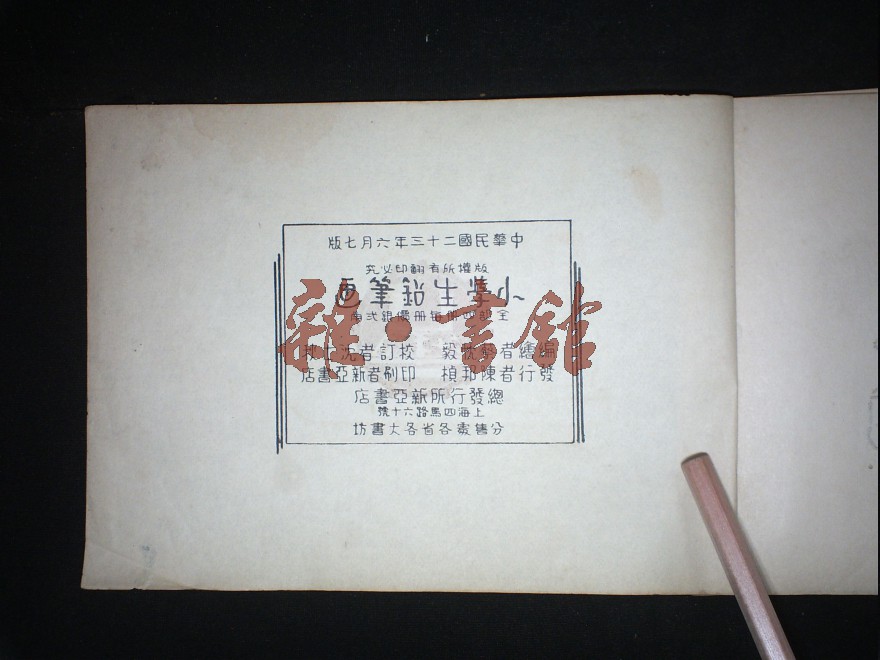 中華民國二十三年六月七版
版權所有翻印必究
小學生鉛筆畫
全部四冊每冊價銀弍角
編繪者 校訂者沈士秋
發行者陳邦楨 印刷者新亞書店
總發行所新亞書店
上海四馬路六十號
分售處各省各大書坊
雜·書館